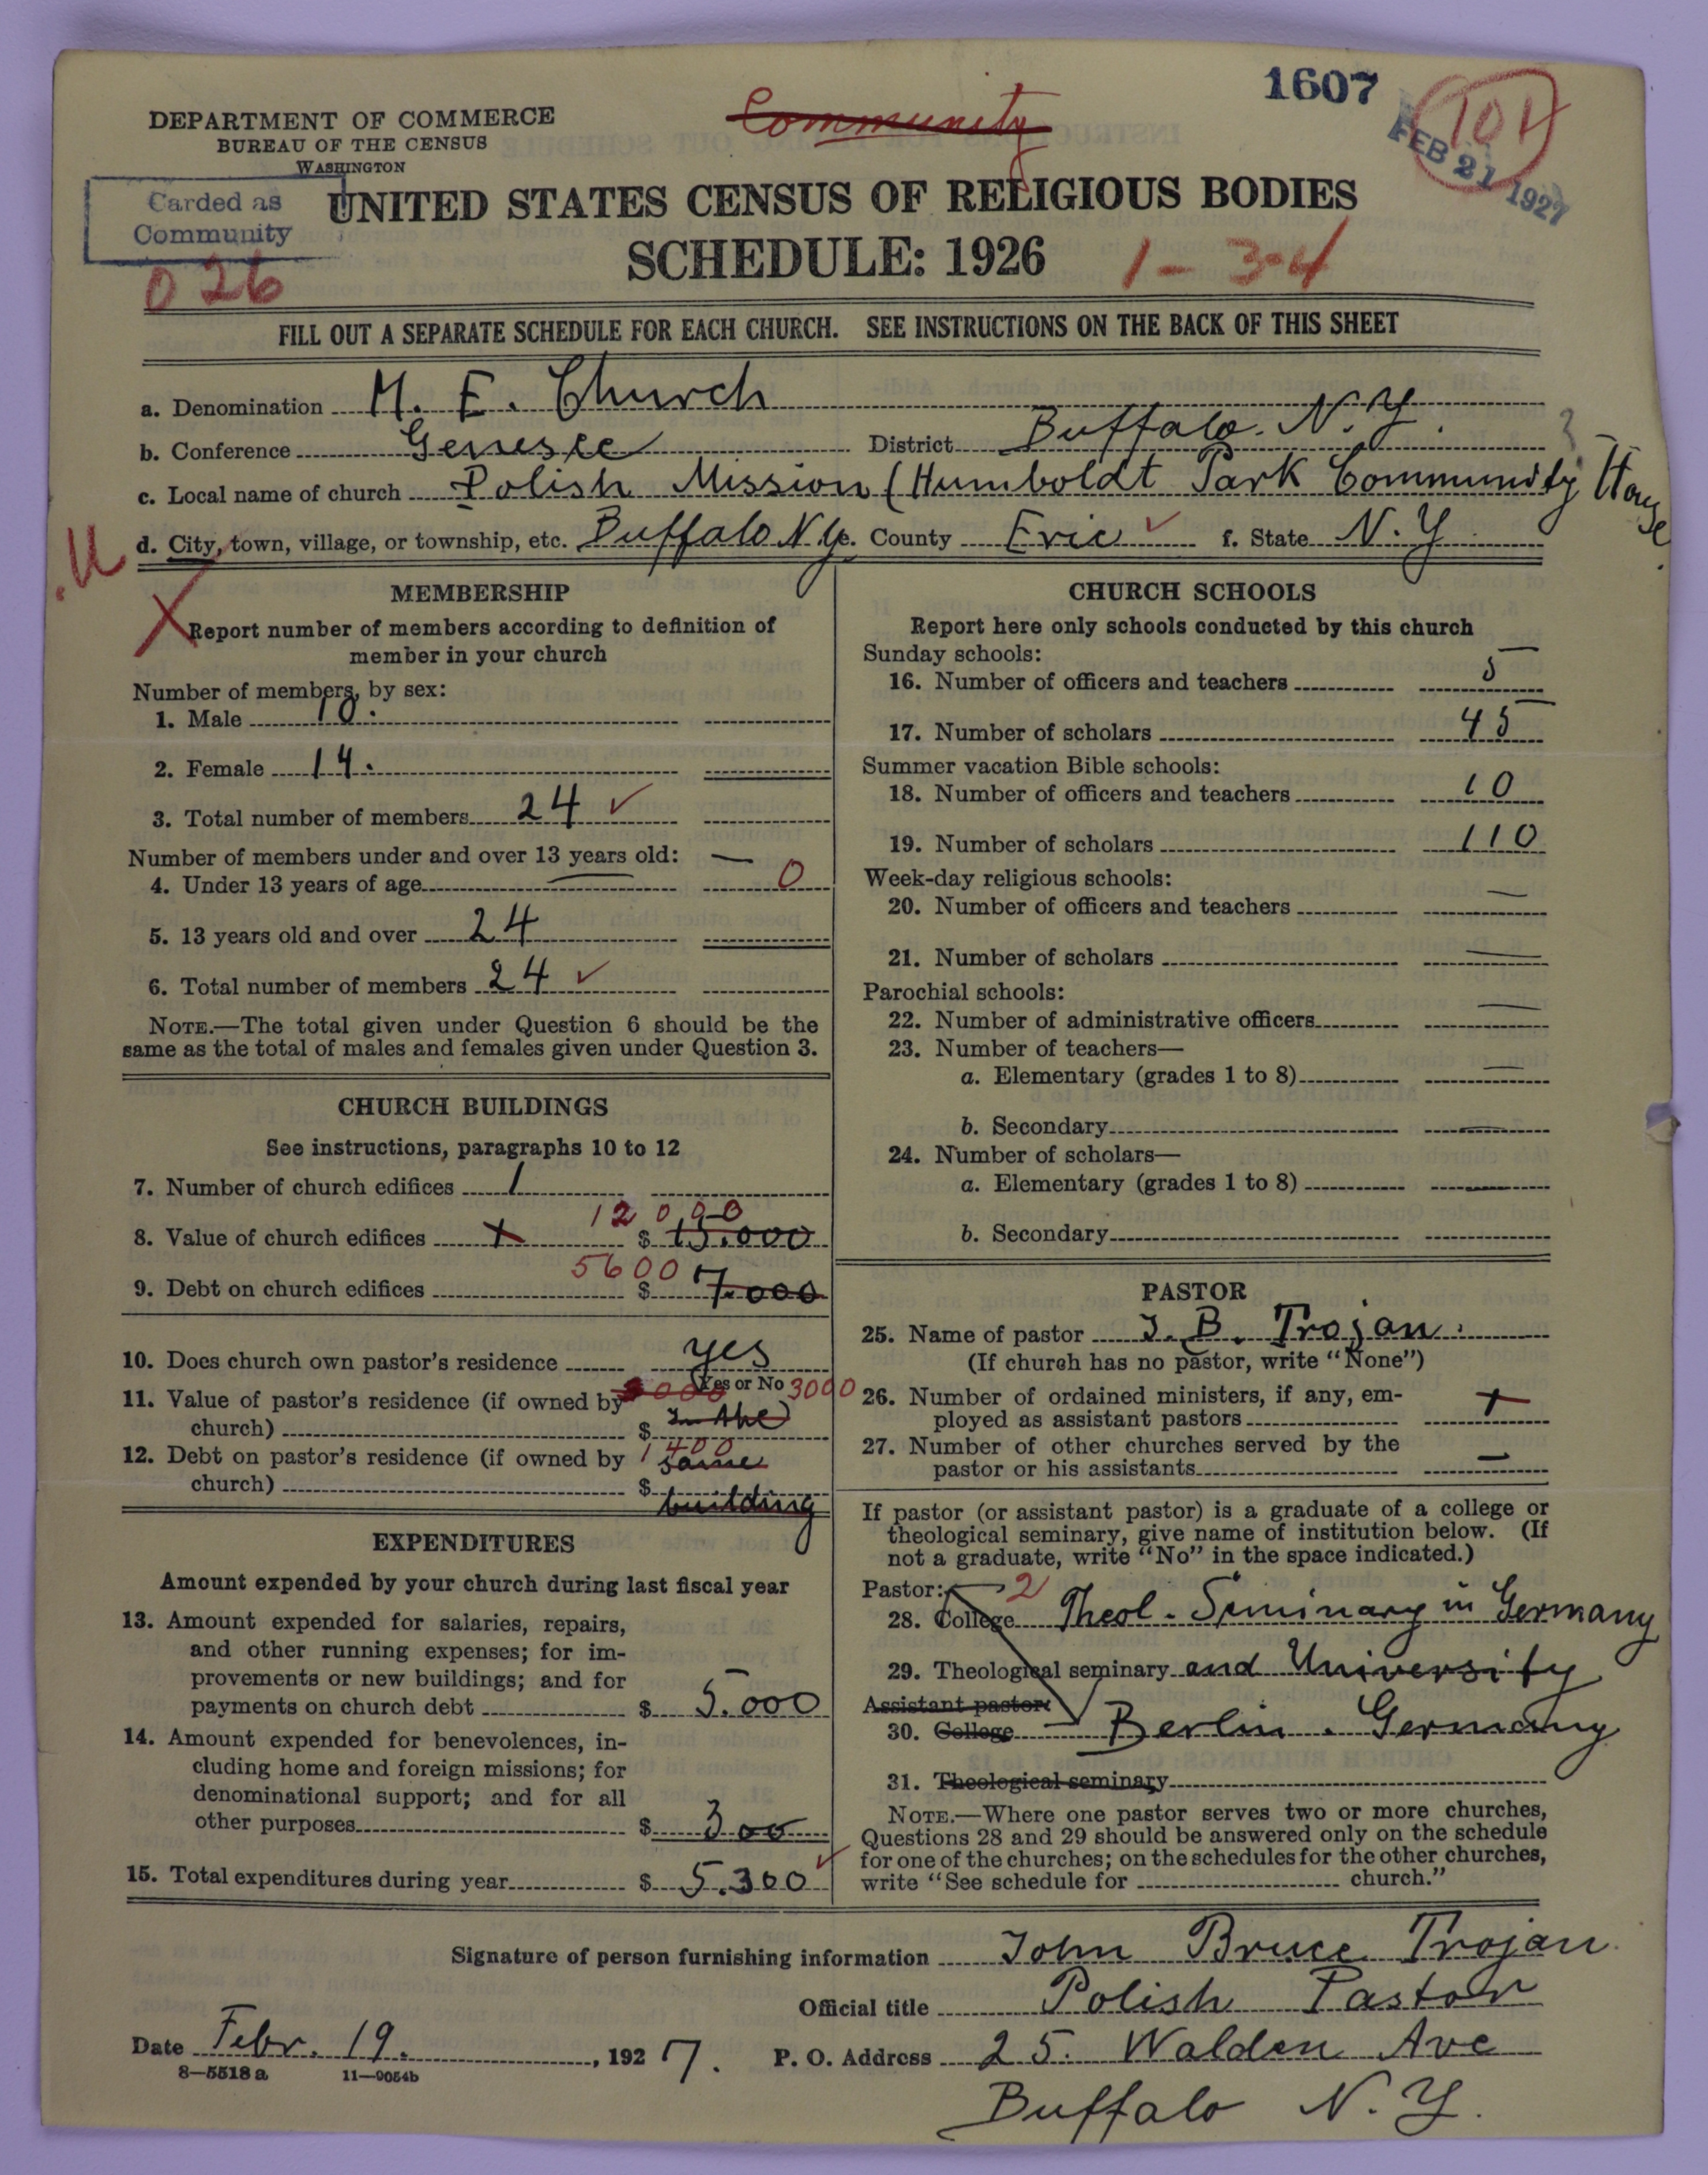 1607
101
FEB 21 1927
DEPARTMENT OF COMMERCE
BUREAU OF THE CENSUS
WASHINGTON
Community
Carded as
Community
026
UNITED STATES CENSUS OF RELIGIOUS BODIES
SCHEDULE: 1926
1-3-4
FILL OUT A SEPARATE SCHEDULE FOR EACH CHURCH. SEE INSTRUCTIONS ON THE BACK OF THIS SHEET
a. Denomination M. E. Church
b. Conference Genesee District Buffalo. N.Y.
c. Local name of church Polish Mission (Humboldt Park Community House
.U d. City, town, village, or township, etc. Buffalo N.Y. e. County Erie f. State N.Y.
MEMBERSHIP
X Report number of members according to definition of
member in your church
Number of members, by sex:
1. Male 10.
2. Female 14.
3. Total number of members 24 ✓
Number of members under and over 13 years old: —
4. Under 13 years of age 0
5. 13 years old and over 24
6. Total number of members 24 ✓
NOTE.—The total given under Question 6 should be the
same as the total of males and females given under Question 3.
CHURCH BUILDINGS
See instructions, paragraphs 10 to 12
7. Number of church edifices 1
12000
8. Value of church edifices x $ 15.000
5600
9. Debt on church edifices $ 7.000
10. Does church own pastor's residence yes
(Yes or No)
11. Value of pastor's residence (if owned by 3000
church) $ In the
12. Debt on pastor's residence (if owned by 1400
same
church) $
building
EXPENDITURES
Amount expended by your church during last fiscal year
13. Amount expended for salaries, repairs,
and other running expenses; for im-
provements or new buildings; and for
payments on church debt $ 5.000
14. Amount expended for benevolences, in-
cluding home and foreign missions; for
denominational support; and for all
other purposes $ 300
15. Total expenditures during year $ 5.300 ✓
CHURCH SCHOOLS
Report here only schools conducted by this church
Sunday schools:
16. Number of officers and teachers 5
17. Number of scholars 45
Summer vacation Bible schools:
18. Number of officers and teachers 10
19. Number of scholars 110
Week-day religious schools:
20. Number of officers and teachers —
21. Number of scholars —
Parochial schools:
22. Number of administrative officers —
23. Number of teachers—
a. Elementary (grades 1 to 8) —
b. Secondary —
24. Number of scholars—
a. Elementary (grades 1 to 8) —
b. Secondary
PASTOR
25. Name of pastor J. B. Trojan.
(If church has no pastor, write "None")
26. Number of ordained ministers, if any, em-
ployed as assistant pastors
27. Number of other churches served by the
pastor or his assistants —
If pastor (or assistant pastor) is a graduate of a college or
theological seminary, give name of institution below. (If
not a graduate, write "No" in the space indicated.)
Pastor: 2
28. College Theol. Seminary in Germany
29. Theological seminary and University
Assistant pastor:
30. College — Berlin. Germany
31. Theological seminary
NOTE.—Where one pastor serves two or more churches,
Questions 28 and 29 should be answered only on the schedule
for one of the churches; on the schedules for the other churches,
write "See schedule for church."
Signature of person furnishing information John Bruce Trojan.
Official title Polish Pastor
Date Febr. 19. , 1927. P. O. Address 25. Walden Ave
8—5518 a 11—9054b
Buffalo N.Y.